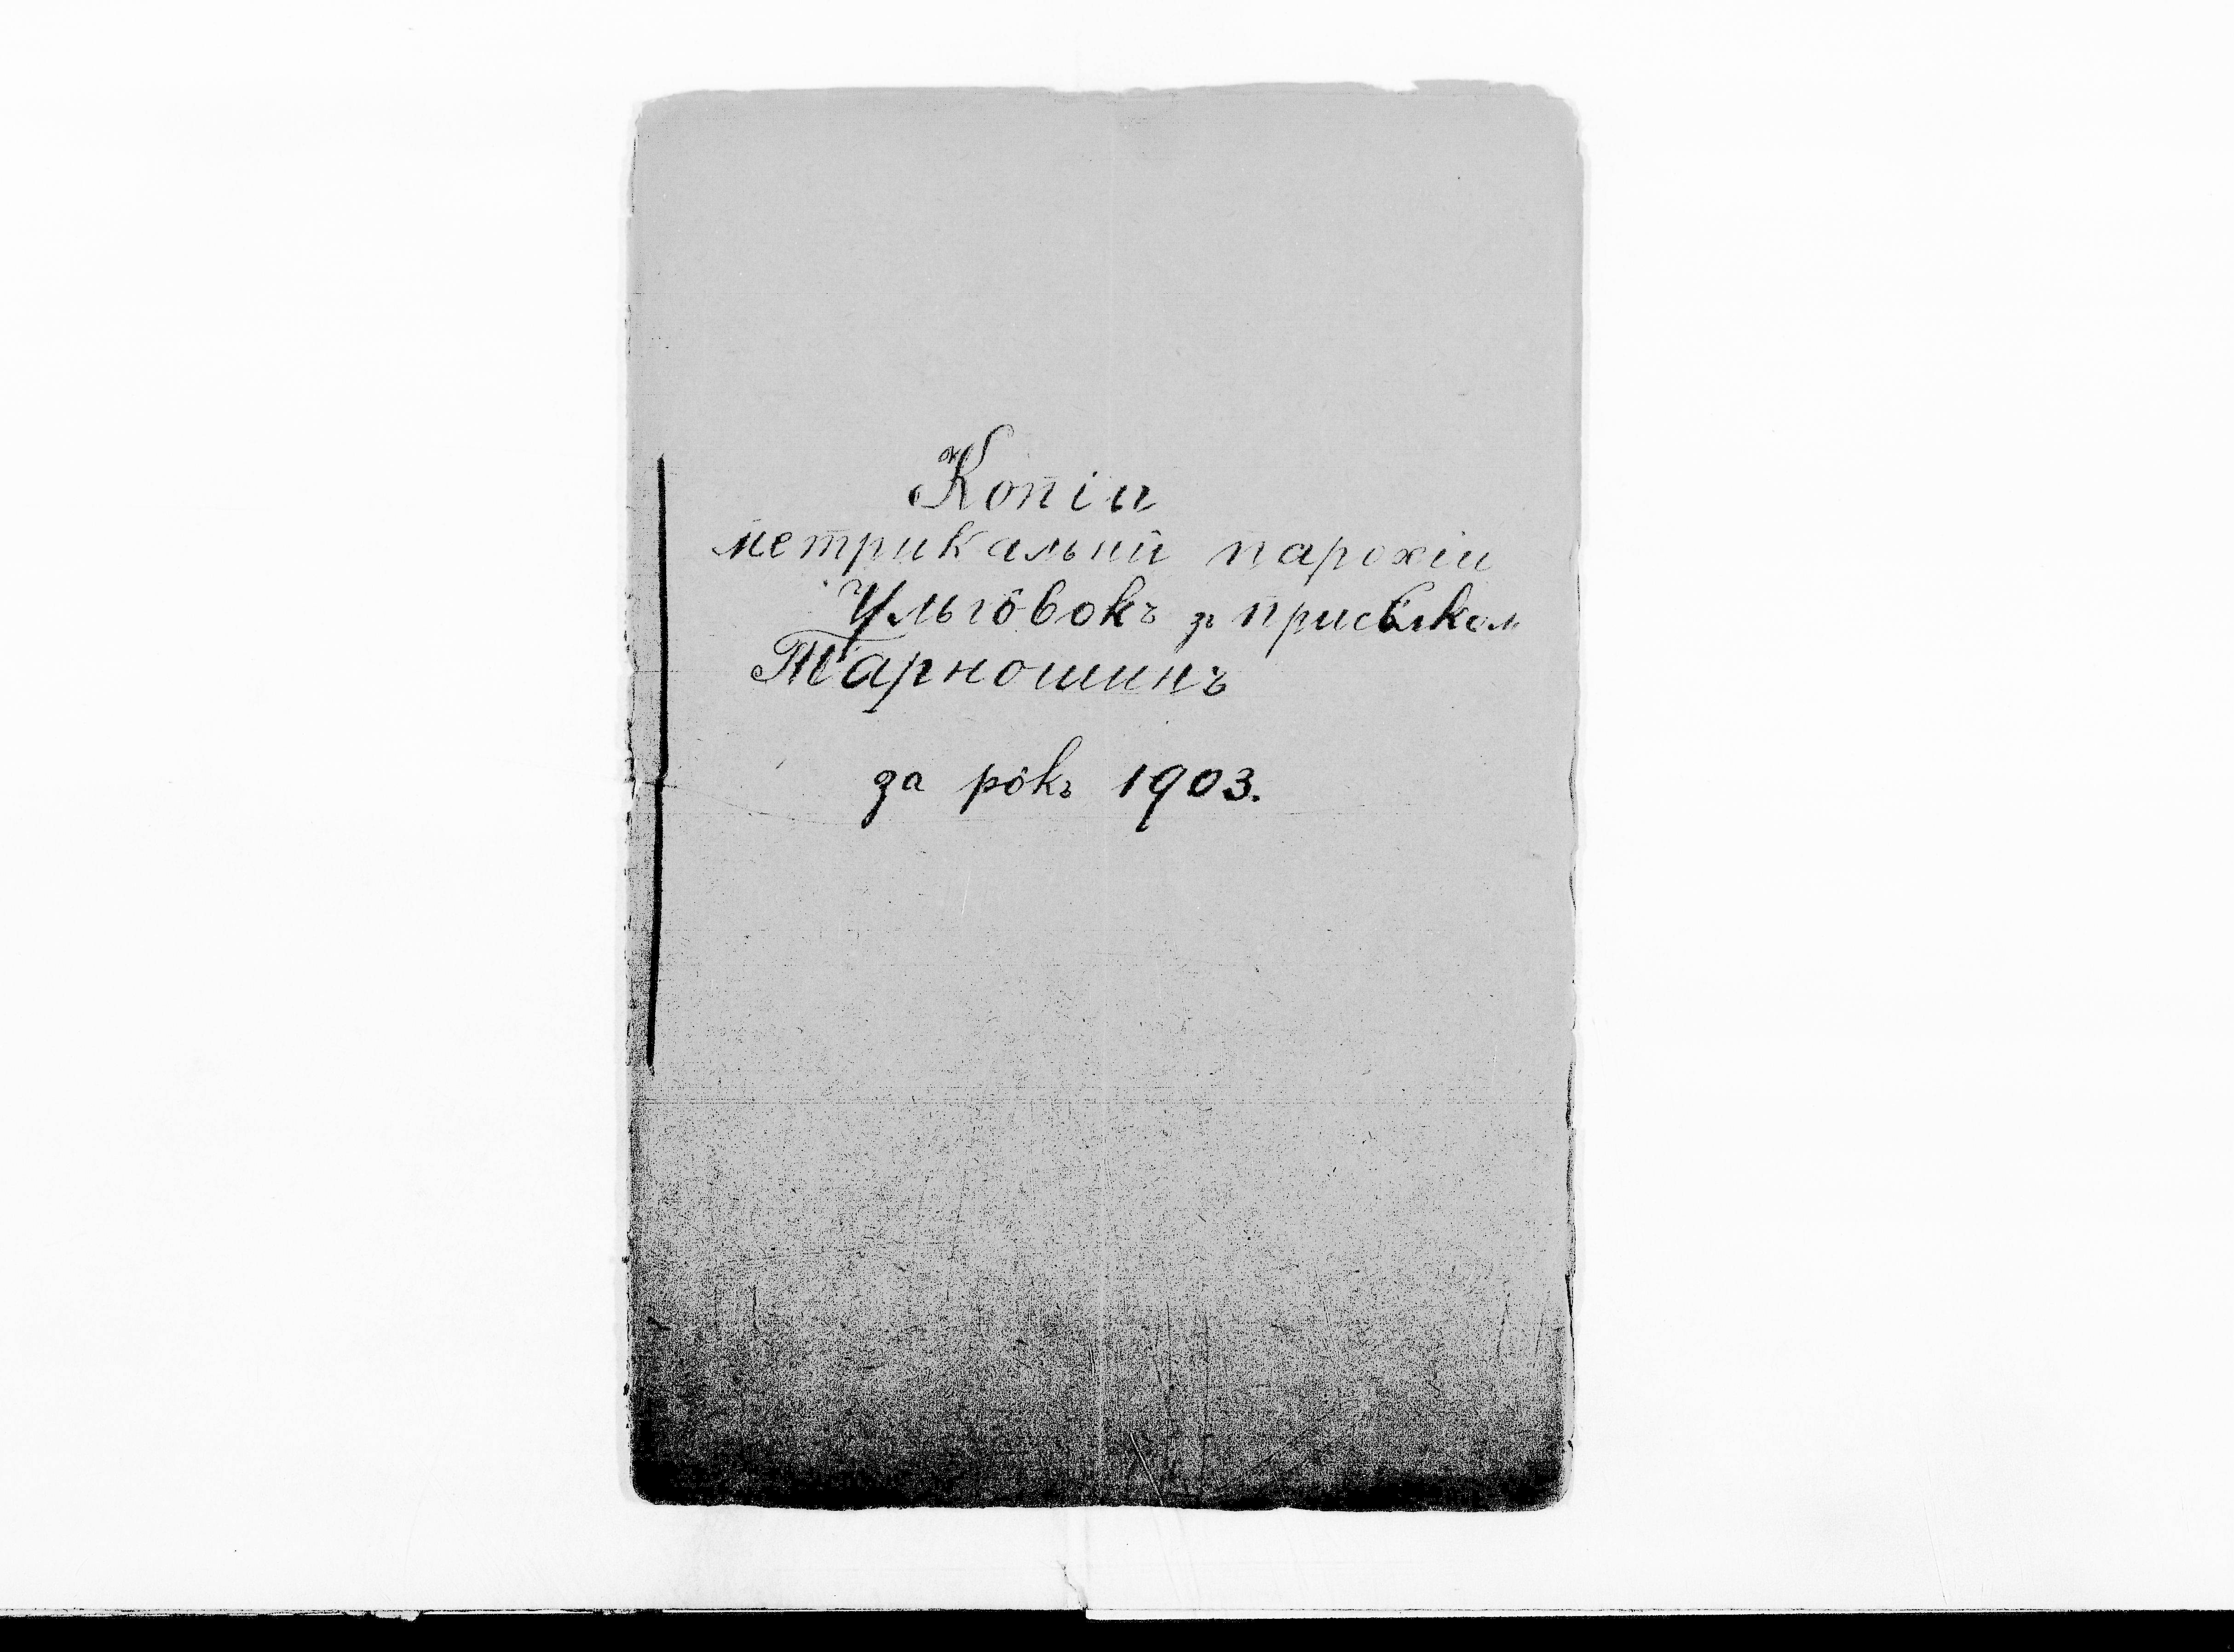 Копіи
метрикальнй парохіи
Ульгôвокъ зъ присѣлком
Тарношинъ
за рôкъ 1903.